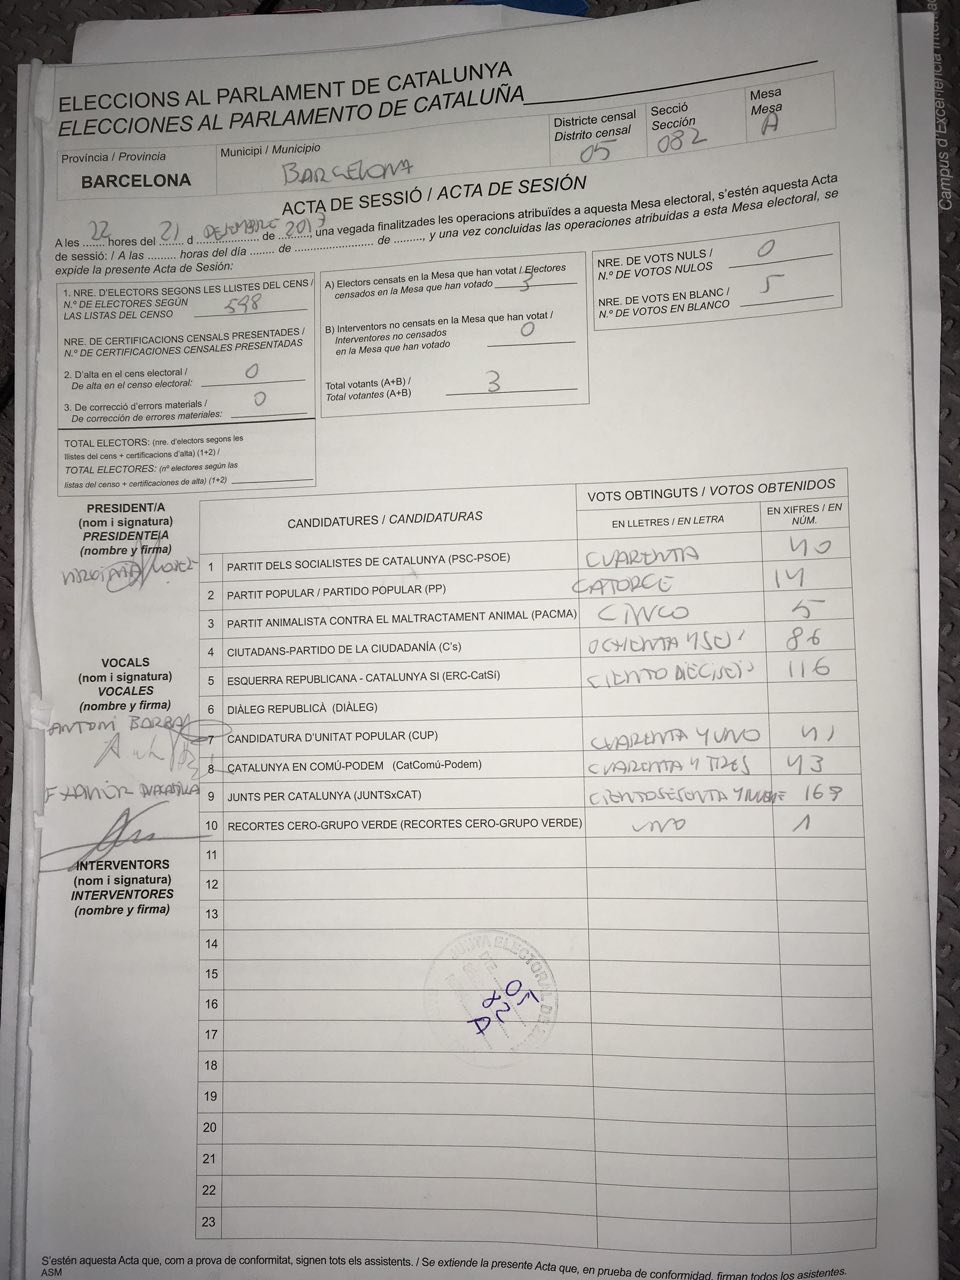 Campus d'Excel·lència Interna
ELECCIONS AL PARLAMENT DE CATALUNYA
ELECCIONES AL PARLAMENTO DE CATALUÑA
Província / Provincia
BARCELONA
Municipi / Municipio
BARCELONA
Districte censal
Distrito censal
05
Secció
Sección
082
Mesa
Mesa
A
ACTA DE SESSIÓ / ACTA DE SESIÓN
A les 22 hores del 21 d DESEMBRE de 2017, una vegada finalitzades les operacions atribuïdes a aquesta Mesa electoral, s'estén aquesta Acta
de sessió: / A las ......... horas del día ........ de .............................. de ........., y una vez concluidas las operaciones atribuidas a esta Mesa electoral, se
expide la presente Acta de Sesión:
1. NRE. D'ELECTORS SEGONS LES LLISTES DEL CENS /
N.º DE ELECTORES SEGÚN
LAS LISTAS DEL CENSO 598
NRE. DE CERTIFICACIONS CENSALS PRESENTADES /
N.º DE CERTIFICACIONES CENSALES PRESENTADAS
2. D'alta en el cens electoral /
De alta en el censo electoral: 0
3. De correcció d'errors materials /
De corrección de errores materiales: 0
TOTAL ELECTORS: (nre. d'electors segons les
llistes del cens + certificacions d'alta) (1+2) /
TOTAL ELECTORES: (nº electores según las
listas del censo + certificaciones de alta) (1+2)
A) Electors censats en la Mesa que han votat / Electores
censados en la Mesa que han votado 3
B) Interventors no censats en la Mesa que han votat /
Interventores no censados
en la Mesa que han votado 0
Total votants (A+B) /
Total votantes (A+B) 3
NRE. DE VOTS NULS /
N.º DE VOTOS NULOS 0
NRE. DE VOTS EN BLANC /
N.º DE VOTOS EN BLANCO 5
PRESIDENT/A
(nom i signatura)
PRESIDENTE/A
(nombre y firma)
VOCALS
(nom i signatura)
VOCALES
(nombre y firma)
ANTONI
INTERVENTORS
(nom i signatura)
INTERVENTORES
(nombre y firma)
CANDIDATURES / CANDIDATURAS
VOTS OBTINGUTS / VOTOS OBTENIDOS
EN LLETRES / EN LETRA
EN XIFRES / EN
NÚM.
1 PARTIT DELS SOCIALISTES DE CATALUNYA (PSC-PSOE) CUARENTA 40
2 PARTIT POPULAR / PARTIDO POPULAR (PP) CATORCE 14
3 PARTIT ANIMALISTA CONTRA EL MALTRACTAMENT ANIMAL (PACMA) CINCO 5
4 CIUTADANS-PARTIDO DE LA CIUDADANÍA (C's) OCHENTA Y SEIS 86
5 ESQUERRA REPUBLICANA - CATALUNYA SI (ERC-CatSI) CIENTO DIECISEIS 116
6 DIÀLEG REPUBLICÀ (DIÀLEG)
7 CANDIDATURA D'UNITAT POPULAR (CUP) CUARENTA Y UNO 41
8 CATALUNYA EN COMÚ-PODEM (CatComú-Podem) CUARENTA Y TRES 43
9 JUNTS PER CATALUNYA (JUNTSxCAT) CIENTO SESENTA Y NUEVE 169
10 RECORTES CERO-GRUPO VERDE (RECORTES CERO-GRUPO VERDE) UNO 1
11
12
13
14
15
16
17
18
19
20
21
22
23
JUNTA ELECTORAL DE
05
82
A
S'estén aquesta Acta que, com a prova de conformitat, signen tots els assistents. / Se extiende la presente Acta que, en prueba de conformidad, firman todos los asistentes.
ASM